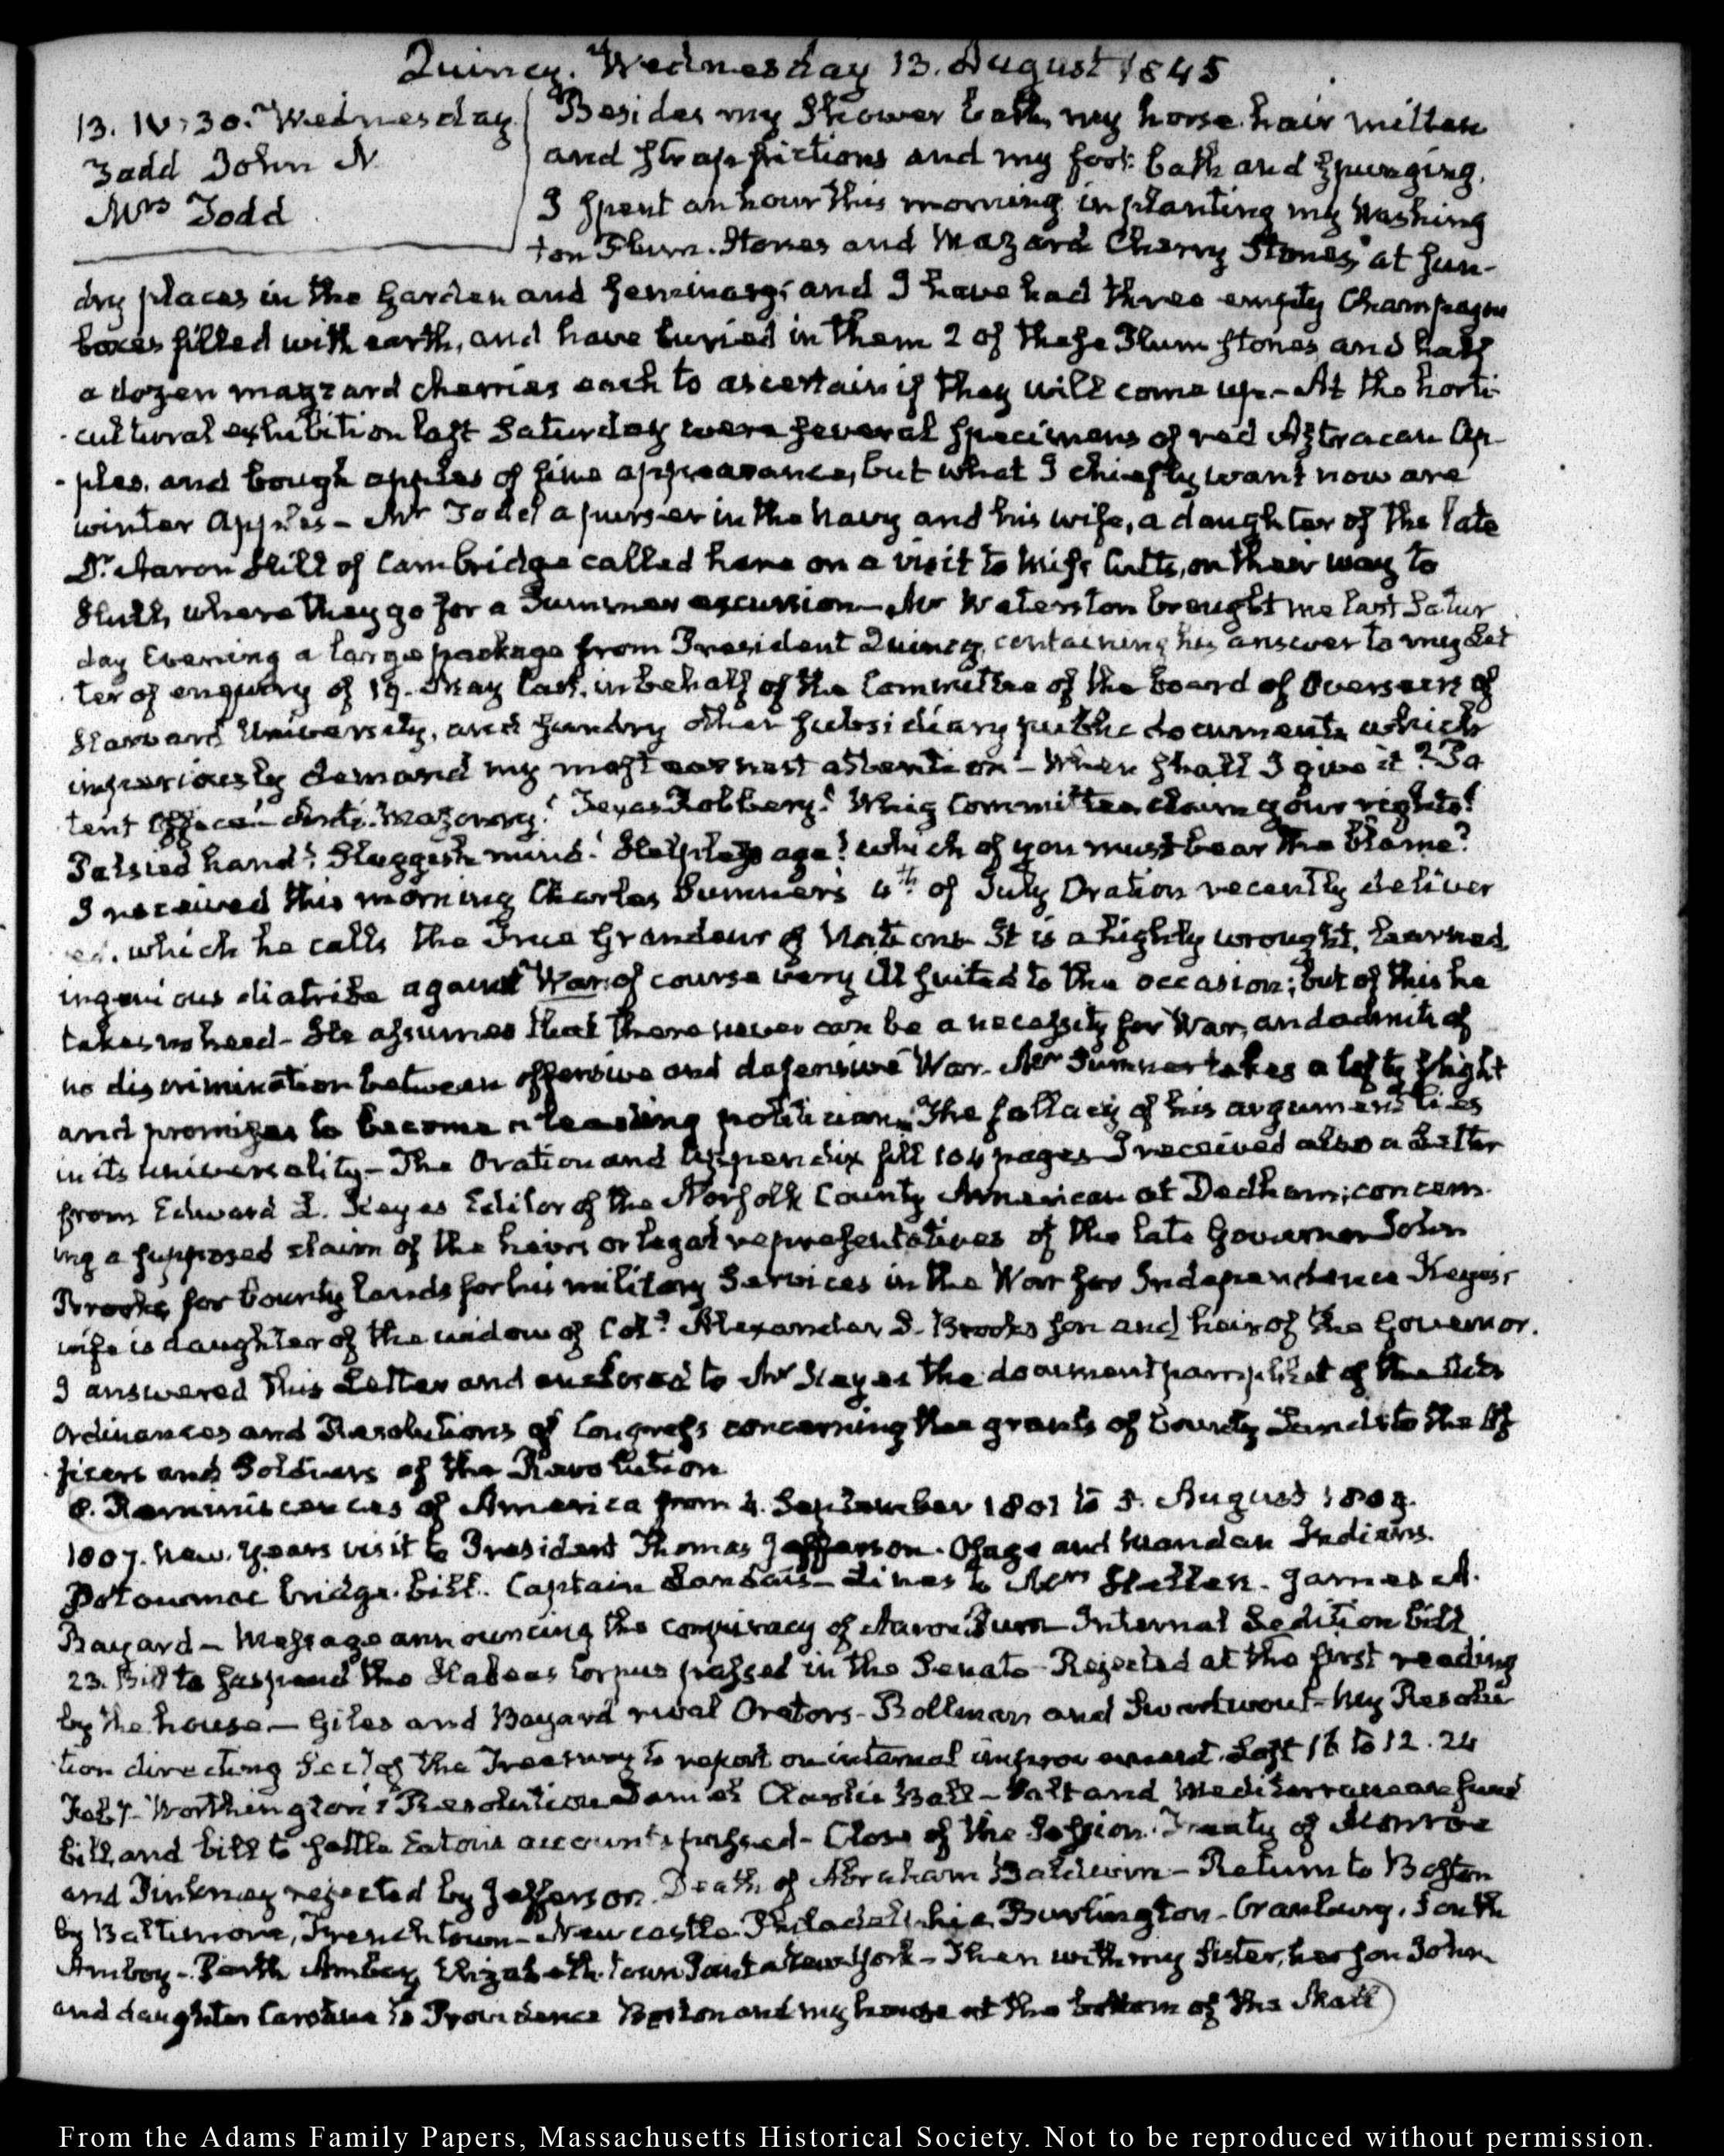 Quincy. Wednesday 13. August 1845
13. IV:30. Wednesday
Todd John N.
Mrs Todd
Besides my Shower bath, my horse hair mitten
and strap frictions and my foot bath and spunging,
I spent an hour this morning in planting my Washing
ton Plum Stones and Mazard Cherry Stones, at sun-
dry places in the Garden and Seminary; and I have had three empty Champagne
boxes filled with earth, and have buried in them 2 of these Plum stones and half
a dozen mazzard cherries each to ascertain if they will come up. — At the horti-
cultural exhibition last Saturday were several specimens of red Astracan Ap-
ples, and bough apples of fine appearance, but what I chiefly want now are
winter Apples — Mr Todd a purser in the navy and his wife, a daughter of the late
Dr. Aaron Hill of Cambridge called here on a visit to Miss Cutts, on their way to
Hull, where they go for a Summer excursion — Mr Waterston brought me last Satur
day Evening a large package from President Quincy, containing his answer to my Let
ter of enquiry of 19. May last, in behalf of the Committee of the board of Overseers of
Harvard University, and sundry other subsidiary public documents which
imperiously demand my most earnest attention — When shall I give it? Pa
tent Office! Anti-Masonry! Texas Robbery! Whig Committee claim your rights!
Palsied hand! Sluggish mind! Helpless age! which of you must bear the blame?
I received this morning Charles Sumner's 4th of July Oration recently deliver
ed, which he calls the True Grandeur of Nations. It is a highly wrought, learned,
ingenious diatribe against War, of course very ill suited to the occasion; but of this he
takes no heed — He assumes that there never can be a necessity for War, and admits of
no discrimination between offensive and defensive War. Mr Sumner takes a lofty flight
and promises to become a leading politician. The fallacy of his argument lies
in its universality — The Oration and Appendix fill 104 pages — I received also a Letter
from Edward L. Keyes Editor of the Norfolk County American at Dedham; concern-
ing a supposed claim of the heirs or legal representatives of the late Governor John
Brooks for bounty lands for his military Services in the War for Independence Keyes's
wife is daughter of the widow of Col. Alexander S. Brooks son and heir of the Governor.
I answered this Letter and enclosed to Mr Keyes the document pamphlet of the Acts
Ordinances and Resolutions of Congress concerning the grants of bounty Lands to the Of
ficers and Soldiers of the Revolution
8. Reminiscences of America from 4. September 1801 to 5. August 1809.
1807. New Years visit to President Thomas Jefferson. Osage and Mandan Indians.
Potowmac bridge bill. Captain Landais — Lines to Mrs Hellen. James A.
Bayard — Message announcing the conspiracy of Aaron Burr — Internal Sedition bill
23. Bill to suspend the Habeas Corpus passed in the Senate — Rejected at the first reading
by the house — Giles and Bayard rival Orators — Bollman and Swartwout — My Resolu
tion directing Secy of the Treasury to report on internal improvement. Lost 16 to 12. 24
Feby — Worthington's Resolution — Ball — Salt and Mediterranean fund
bill, and bill to settle Eatons accounts passed — Close of the Session. Treaty of Monroe
and Pinkney rejected by Jefferson. Death of Abraham Baldwin — Return to Boston
by Baltimore, Frenchtown — Newcastle. Philadelphia, Burlington — Cranbury, South
Amboy — Perth Amboy, Elizabeth-town Point — New York — Then with my Sister, her son John
and daughter Caroline to Providence Boston and my house at the bottom of the Mall)
From the Adams Family Papers, Massachusetts Historical Society. Not to be reproduced without permission.